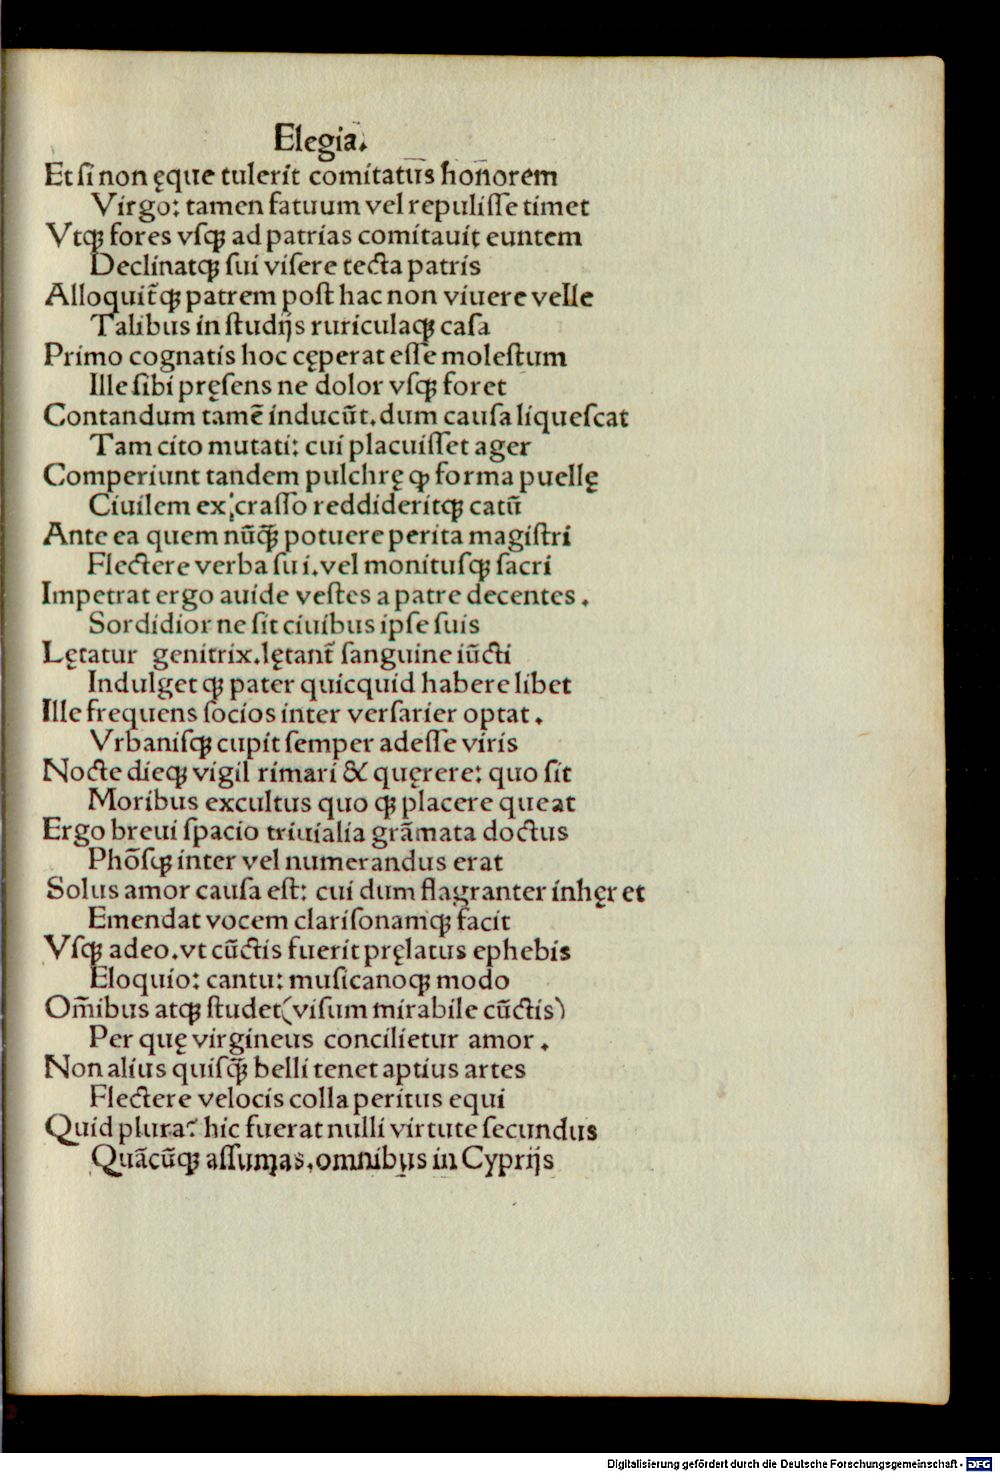 Elegia.
Et si non ęque tulerit comitatus honorem
Virgo: tamen fatuum vel repulisse timet
Vtqꝫ fores vsqꝫ ad patrias comitauit euntem
Declinatqꝫ sui visere tecta patris
Alloquit᷑qꝫ patrem post hac non viuere velle
Talibus in studijs ruriculaqꝫ casa
Primo cognatis hoc cęperat esse molestum
Ille sibi pręsens ne dolor vsqꝫ foret
Contandum tamē inducūt. dum causa liquescat
Tam cito mutati: cui placuisset ager
Comperiunt tandem pulchrę ꝙ forma puellę
Ciuilem ex crasso reddideritqꝫ catū
Ante ea quem nūq̄ꝫ potuere perita magistri
Flectere verba sui. vel monitusqꝫ sacri
Impetrat ergo auide vestes a patre decentes.
Sordidior ne sit ciuibus ipse suis
Lętatur genitrix. lętant᷑ sanguine iūcti
Indulget qꝫ pater quicquid habere libet
Ille frequens socios inter versarier optat.
Vrbanisqꝫ cupit semper adesse viris
Nocte dieqꝫ vigil rimari & quęrere: quo sit
Moribus excultus quo qꝫ placere queat
Ergo breui spacio triuialia grāmata doctus
Phōsqꝫ inter vel numerandus erat
Solus amor causa est: cui dum flagranter inhęr et
Emendat vocem clarisonamqꝫ facit
Vsqꝫ adeo. vt cūctis fuerit pręlatus ephebis
Eloquio: cantu: musicanoqꝫ modo
Om̄ibus atqꝫ studet (visum mirabile cūctis)
Per quę virgineus concilietur amor.
Non alius quisq̄ꝫ belli tenet aptius artes
Flectere velocis colla peritus equi
Quid plura? hic fuerat nulli virtute secundus
Quācūqꝫ assumas. omnibus in Cyprijs
Digitalisierung gefördert durch die Deutsche Forschungsgemeinschaft - DFG